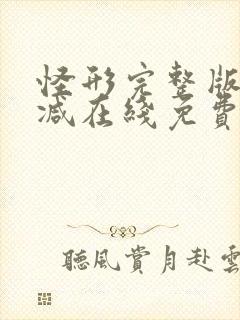 怪形完整版
减在綫免費
聽風賞月赴雲